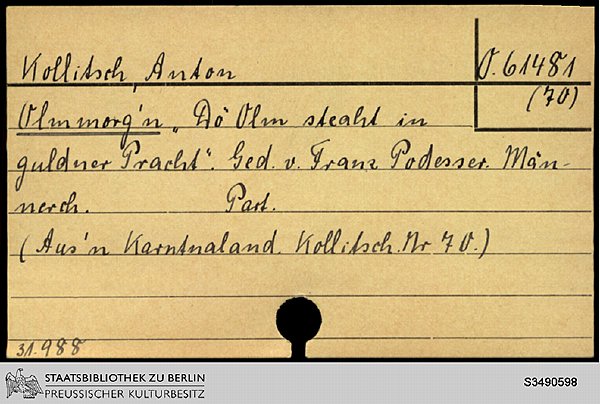 Kollitsch, Anton
O.61481
(70)
Olmmorg'n „Dö Olm steaht in
guldner Pracht“. Ged. v. Franz Podesser. Män-
nerch. Part.
(Aus'n Karntnaland. Kollitsch. Nr 70.)
31.988
STAATSBIBLIOTHEK ZU BERLIN
PREUSSISCHER KULTURBESITZ
S3490598